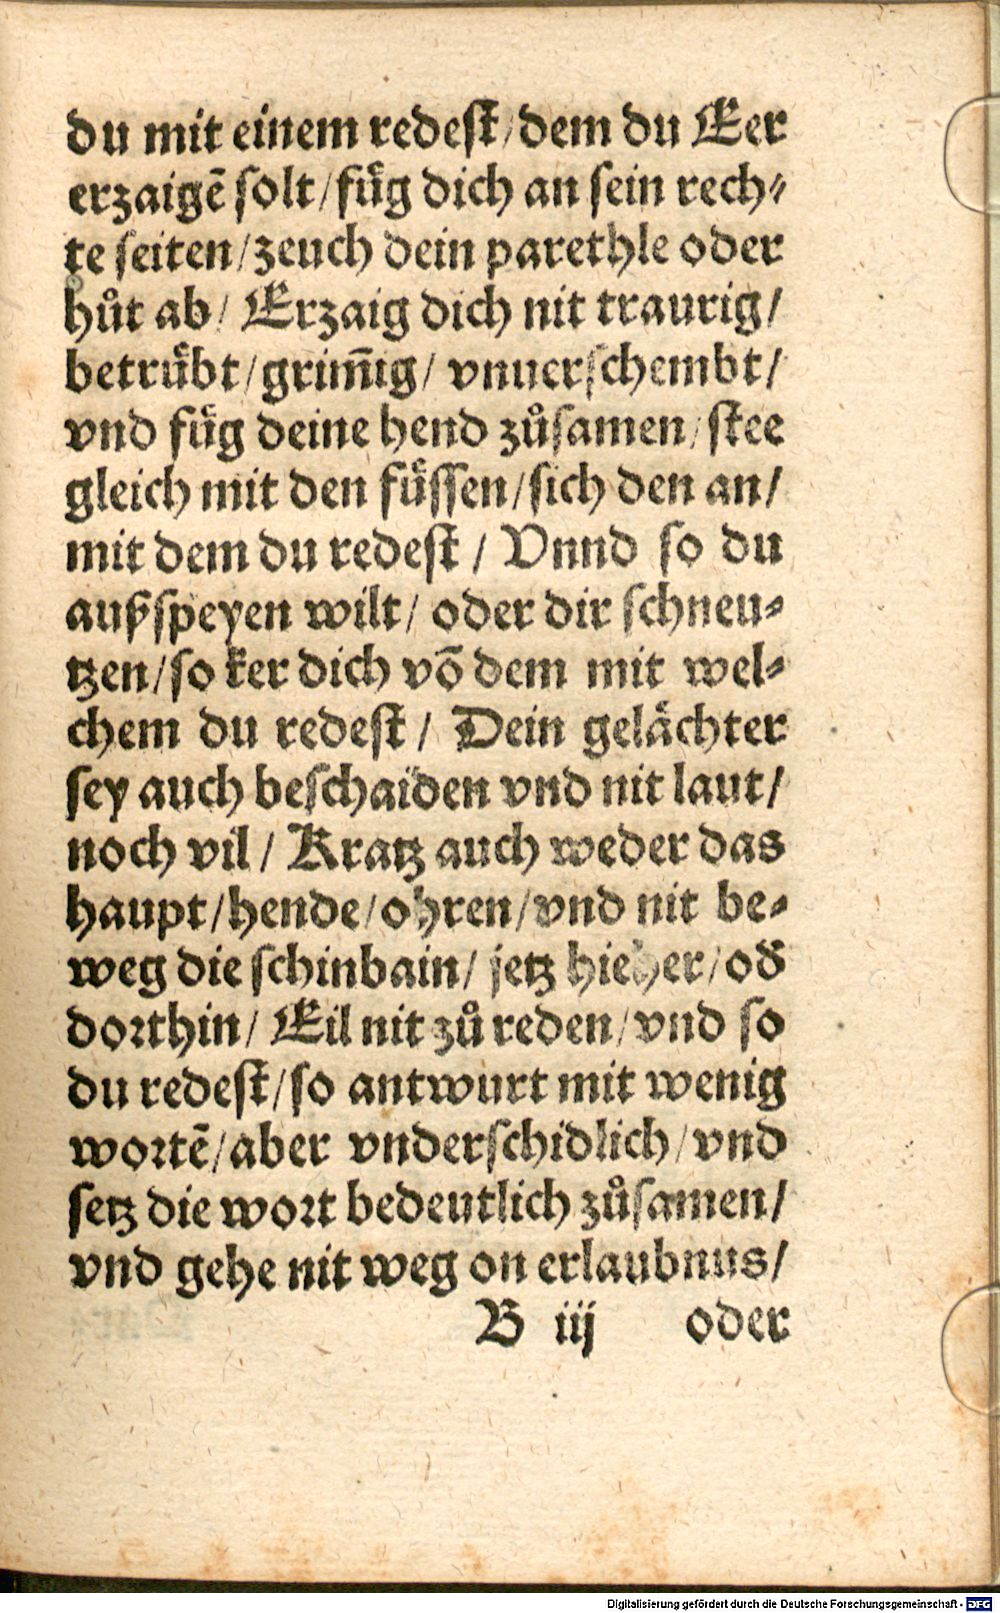 du mit einem redest/dem du Eer
erzaigẽ solt/fuͤg dich an sein rech⸗
te seiten/zeuch dein parethle oder
huͦt ab/ Erzaig dich nit traurig/
betruͤbt/grim̃ig/ vnuerschembt/
vnd fuͤg deine hend zuͦsamen/stee
gleich mit den fuͤssen/sich den an/
mit dem du redest/ Vnnd so du
außspeyen wilt/ oder dir schneu⸗
tzen/so ker dich võ dem mit wel⸗
chem du redest/ Dein gelaͤchter
sey auch beschaiden vnd nit laut/
noch vil/ Kratz auch weder das
haupt/hende/ohren/vnd nit be⸗
weg die schinbain/ jetz hieher/od̕
dorthin/ Eil nit zuͦ reden/vnd so
du redest/so antwurt mit wenig
wortẽ/aber vnderschidlich/vnd
setz die wort bedeutlich zuͦsamen/
vnd gehe nit weg on erlaubnus/
B iij oder
Digitalisierung gefördert durch die Deutsche Forschungsgemeinschaft - DFG